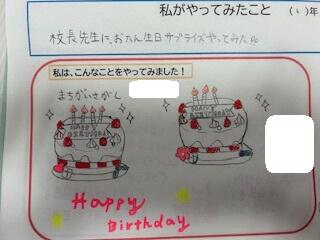 私がやってみたこと (1)年
校長先生に、おたん生日サプライズやってみた
私は、こんなことをやってみました！
まちがいさがし
HAPPY
BIRTHDAY
HAPPY
BIRTHDAY
Happy
Birthday